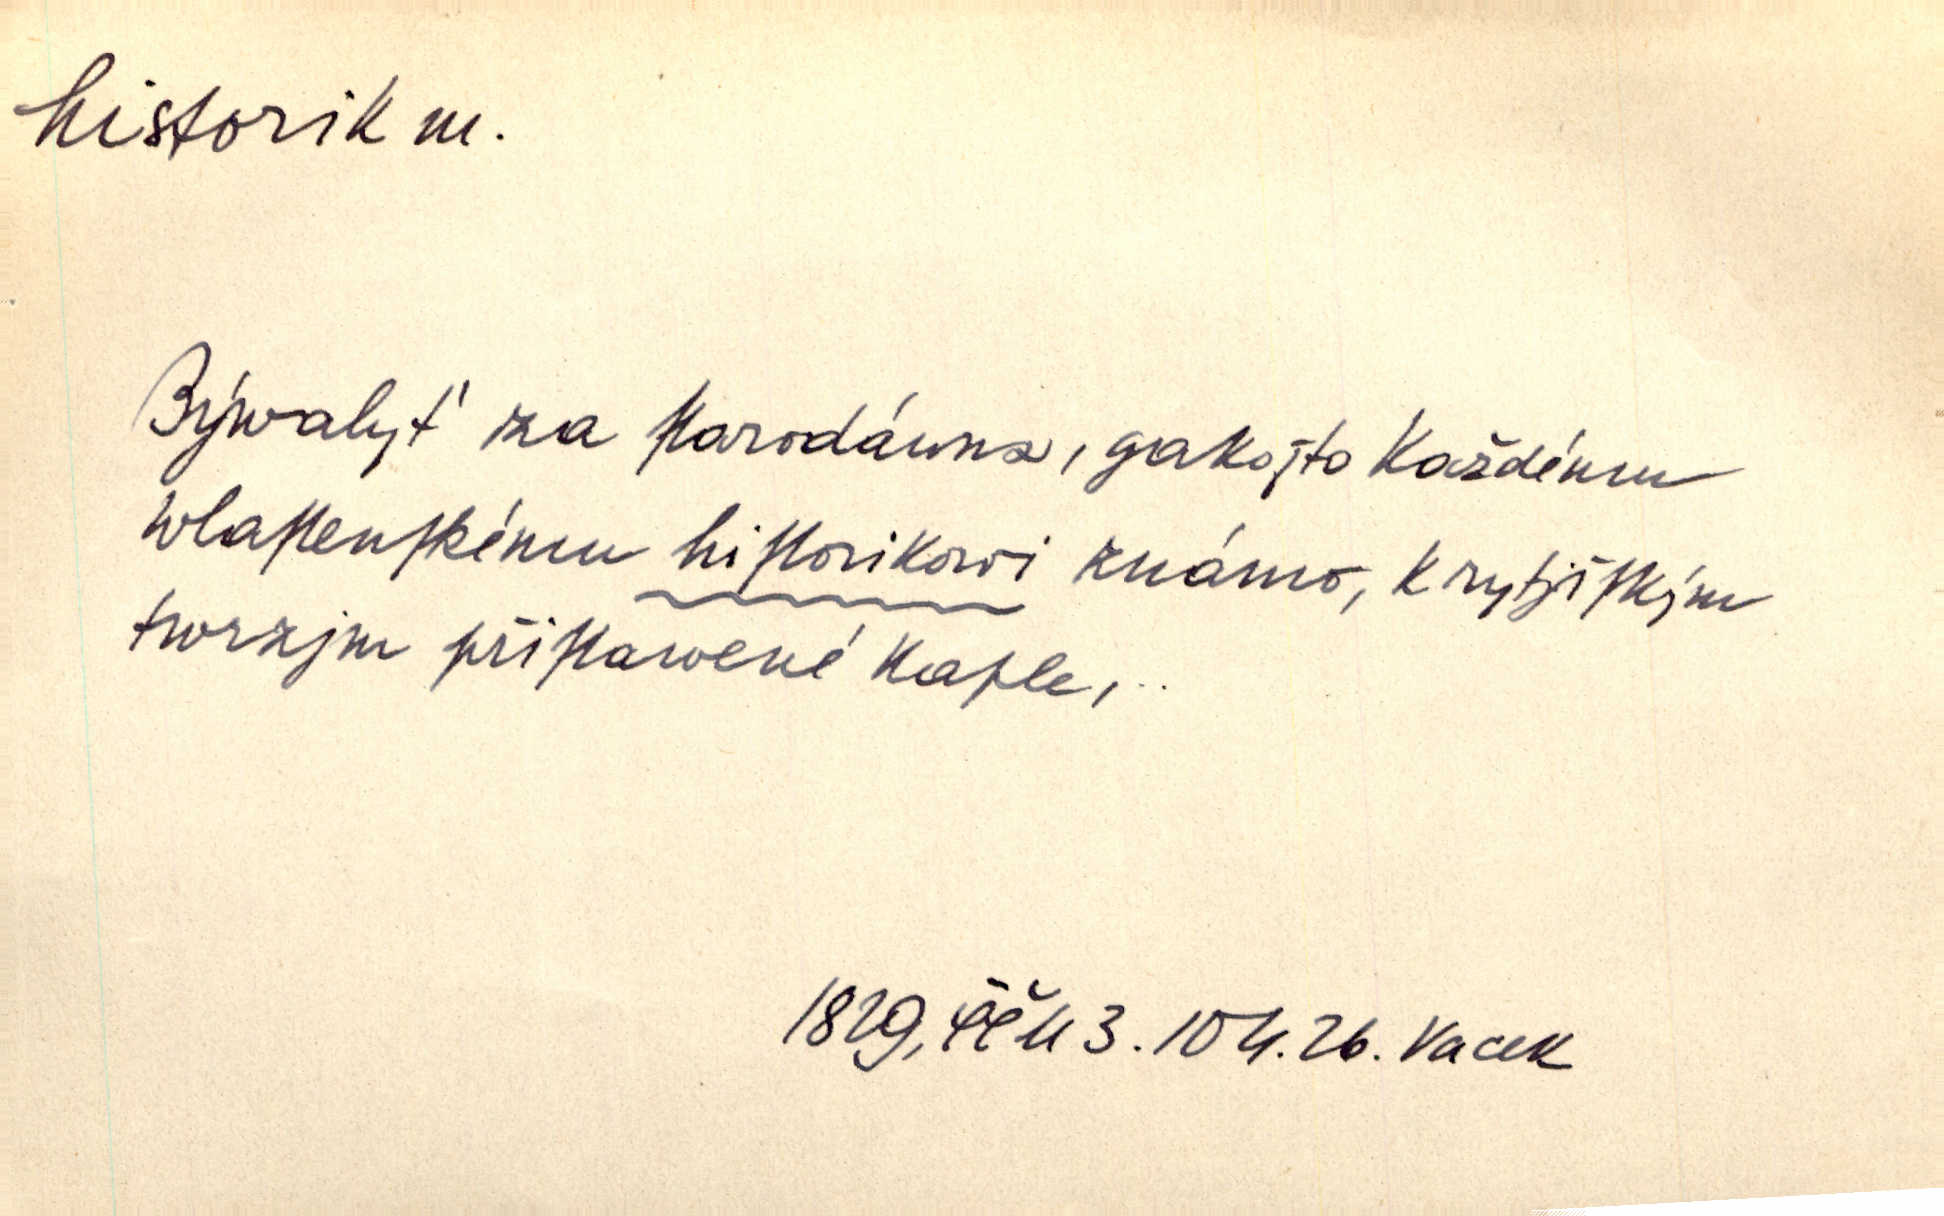 historik m.
Býwalyť za ſtarodáwna, gakožto každému
wlaſtenſkému hiſtorikowi známo, k rytjřſkým
tworzjm přiſtawené kaple, ..
1829, ČČM 3. 104. 26. Vacek